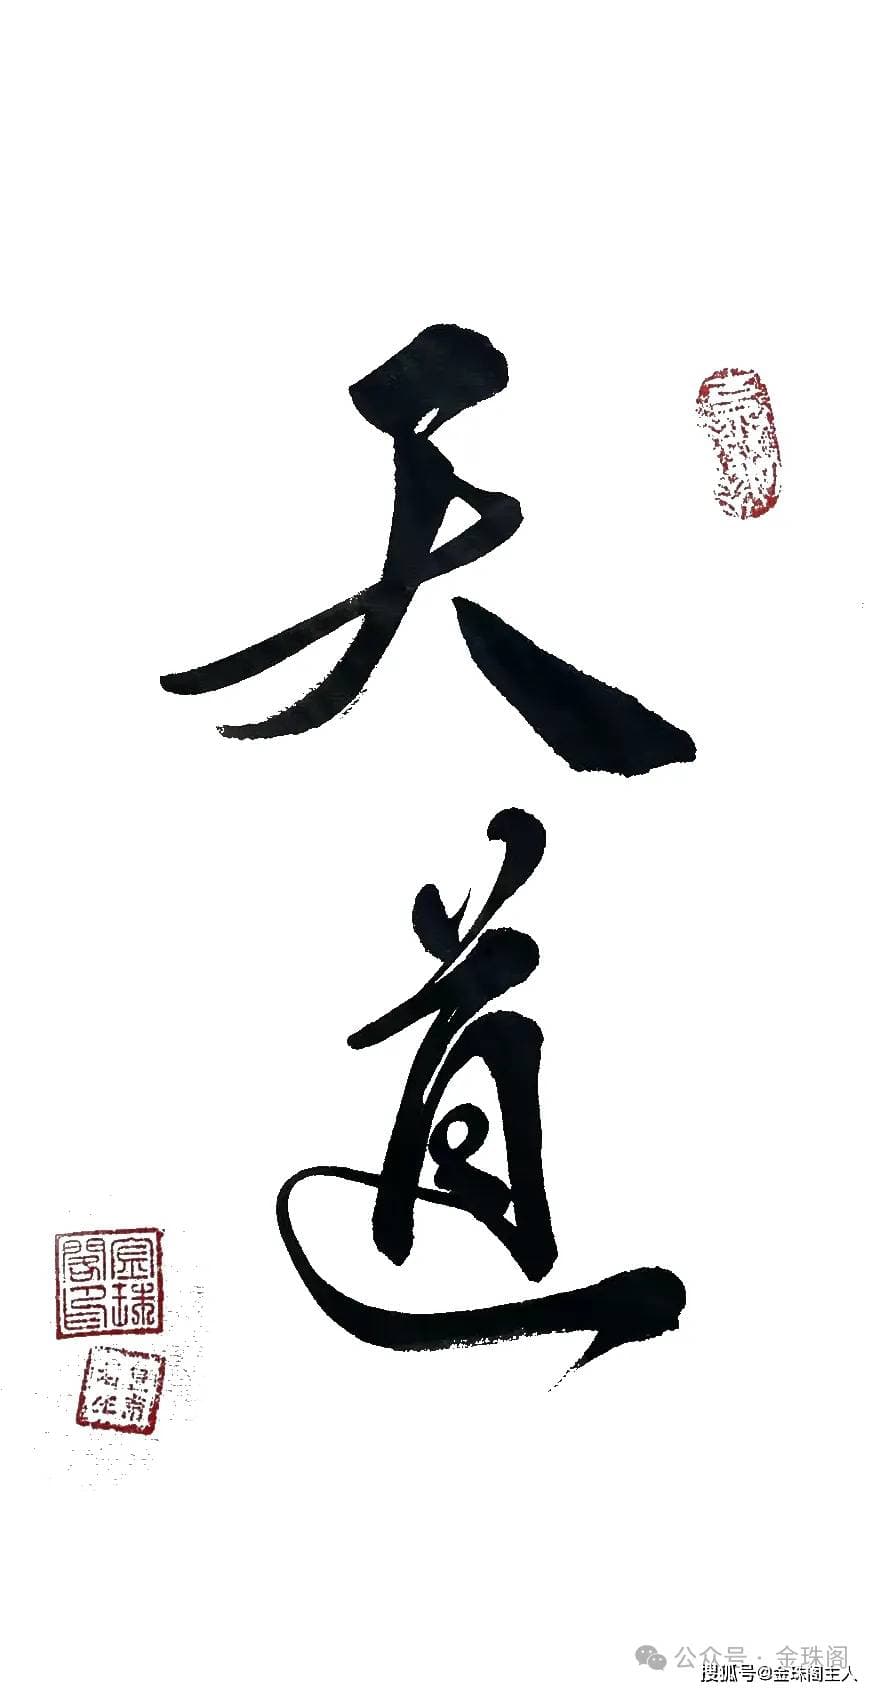 天道
金珠阁印
公众号·金珠阁
搜狐号@金珠阁主人